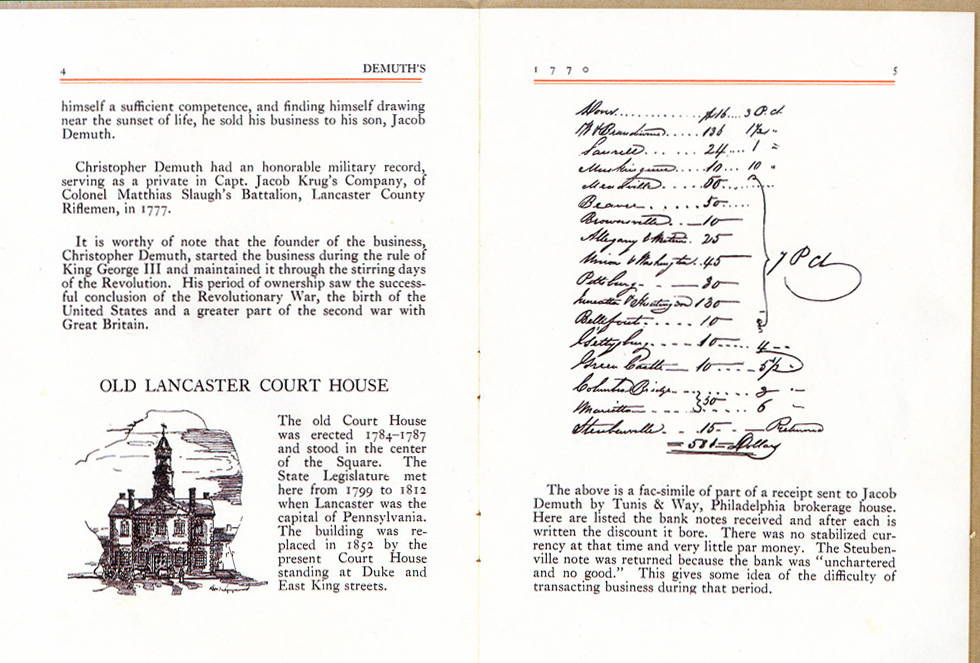 4 DEMUTH'S
himself a sufficient competence, and finding himself drawing
near the sunset of life, he sold his business to his son, Jacob
Demuth.
Christopher Demuth had an honorable military record,
serving as a private in Capt. Jacob Krug's Company, of
Colonel Matthias Slaugh's Battalion, Lancaster County
Riflemen, in 1777.
It is worthy of note that the founder of the business,
Christopher Demuth, started the business during the rule of
King George III and maintained it through the stirring days
of the Revolution. His period of ownership saw the success-
ful conclusion of the Revolutionary War, the birth of the
United States and a greater part of the second war with
Great Britain.
OLD LANCASTER COURT HOUSE
The old Court House
was erected 1784–1787
and stood in the center
of the Square. The
State Legislature met
here from 1799 to 1812
when Lancaster was the
capital of Pennsylvania.
The building was re-
placed in 1852 by the
present Court House
standing at Duke and
East King streets.
1770 5
$16 3 P. ct.
136 1½ "
24 1 "
Muskingum 10 10 "
Meadville 60
Beaver 50
Brownsville 10
Allegany & 25
Union & Washington 45
7 P ct
Pittsburg 30
130
Bellefont 10
Gettysburg 10 4
Green Castle 10 5½
Columbia Bridge 3 "
30
Marietta 6 "
Steubenville 15 Returned
581 Dollars
The above is a fac-simile of part of a receipt sent to Jacob
Demuth by Tunis & Way, Philadelphia brokerage house.
Here are listed the bank notes received and after each is
written the discount it bore. There was no stabilized cur-
rency at that time and very little par money. The Steuben-
ville note was returned because the bank was "unchartered
and no good." This gives some idea of the difficulty of
transacting business during that period.